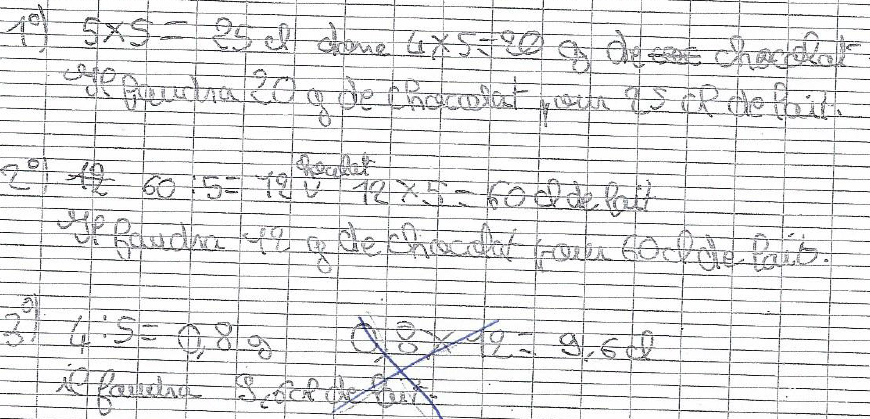 1°) 5×5= 25 cl donc 4×5=20 g de chocolat
Il faudra 20 g de chocolat pour 25 cl de lait.
2°) 12 60:5= 12 12×5=60 cl de lait
Il faudra 12 g de chocolat pour 60 cl de lait.
3°) 4:5= 0,8 g 0,8×12= 9,6 cl
il faudra 9,6 cl de lait.